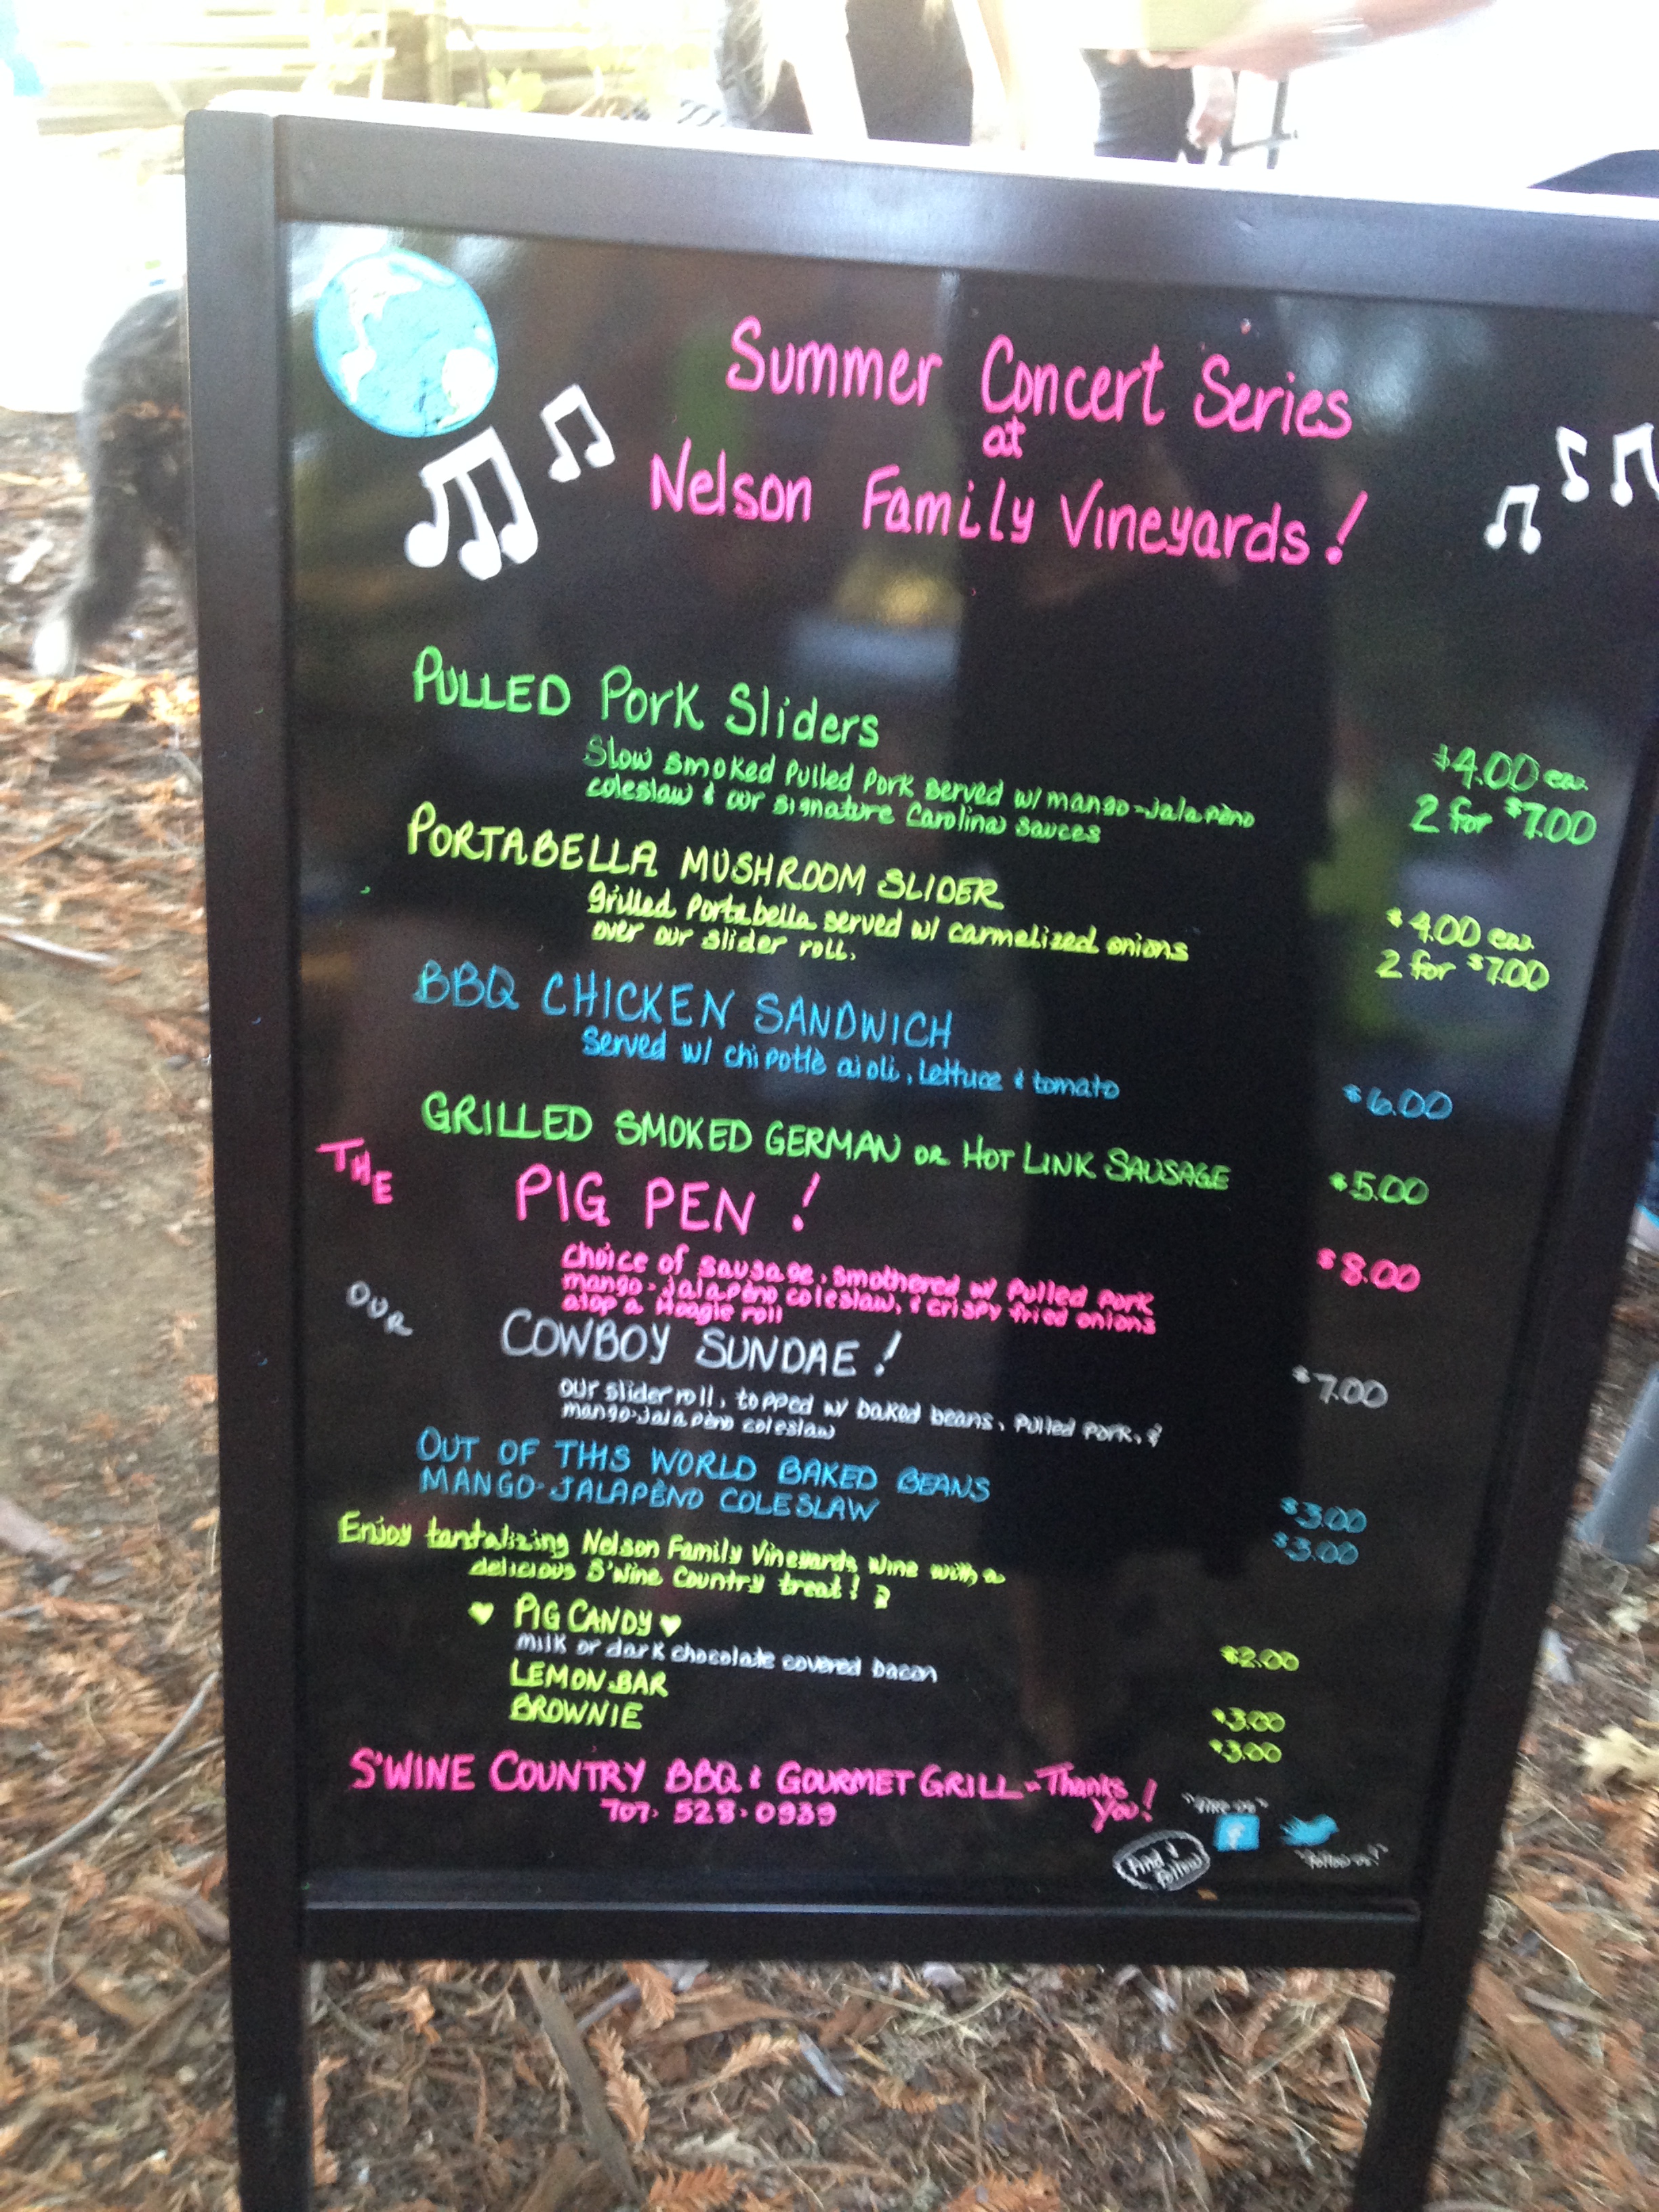 Summer Concert Series
at
Nelson Family Vineyards!
PULLED Pork Sliders
Slow smoked Pulled Pork served w/ mango-jalapeño
coleslaw & our signature Carolina sauces
$4.00 ea.
2 for $7.00
PORTABELLA MUSHROOM SLIDER
Grilled Portabella served w/ carmelized onions
over our slider roll.
$4.00 ea.
2 for $7.00
BBQ CHICKEN SANDWICH
Served w/ chipotle aioli, lettuce & tomato
$6.00
GRILLED SMOKED GERMAN OR HOT LINK SAUSAGE $5.00
THE PIG PEN!
choice of sausage, smothered w/ Pulled Pork
mango-jalapeño coleslaw, & crispy fried onions
atop a Hoagie roll
$8.00
OUR COWBOY SUNDAE!
our slider roll, topped w/ baked beans, Pulled Pork, &
mango-jalapeño coleslaw
$7.00
OUT OF THIS WORLD BAKED BEANS $3.00
MANGO-JALAPEÑO COLESLAW $3.00
Enjoy tantalizing Nelson Family Vineyards wine with a
delicious S'wine Country treat!
PIG CANDY $2.00
milk or dark chocolate covered bacon
LEMON BAR $3.00
BROWNIE $3.00
S'WINE COUNTRY BBQ & GOURMET GRILL - Thanks
You!
707. 528. 0939
"like us"
f
Find & Follow
"follow us!"